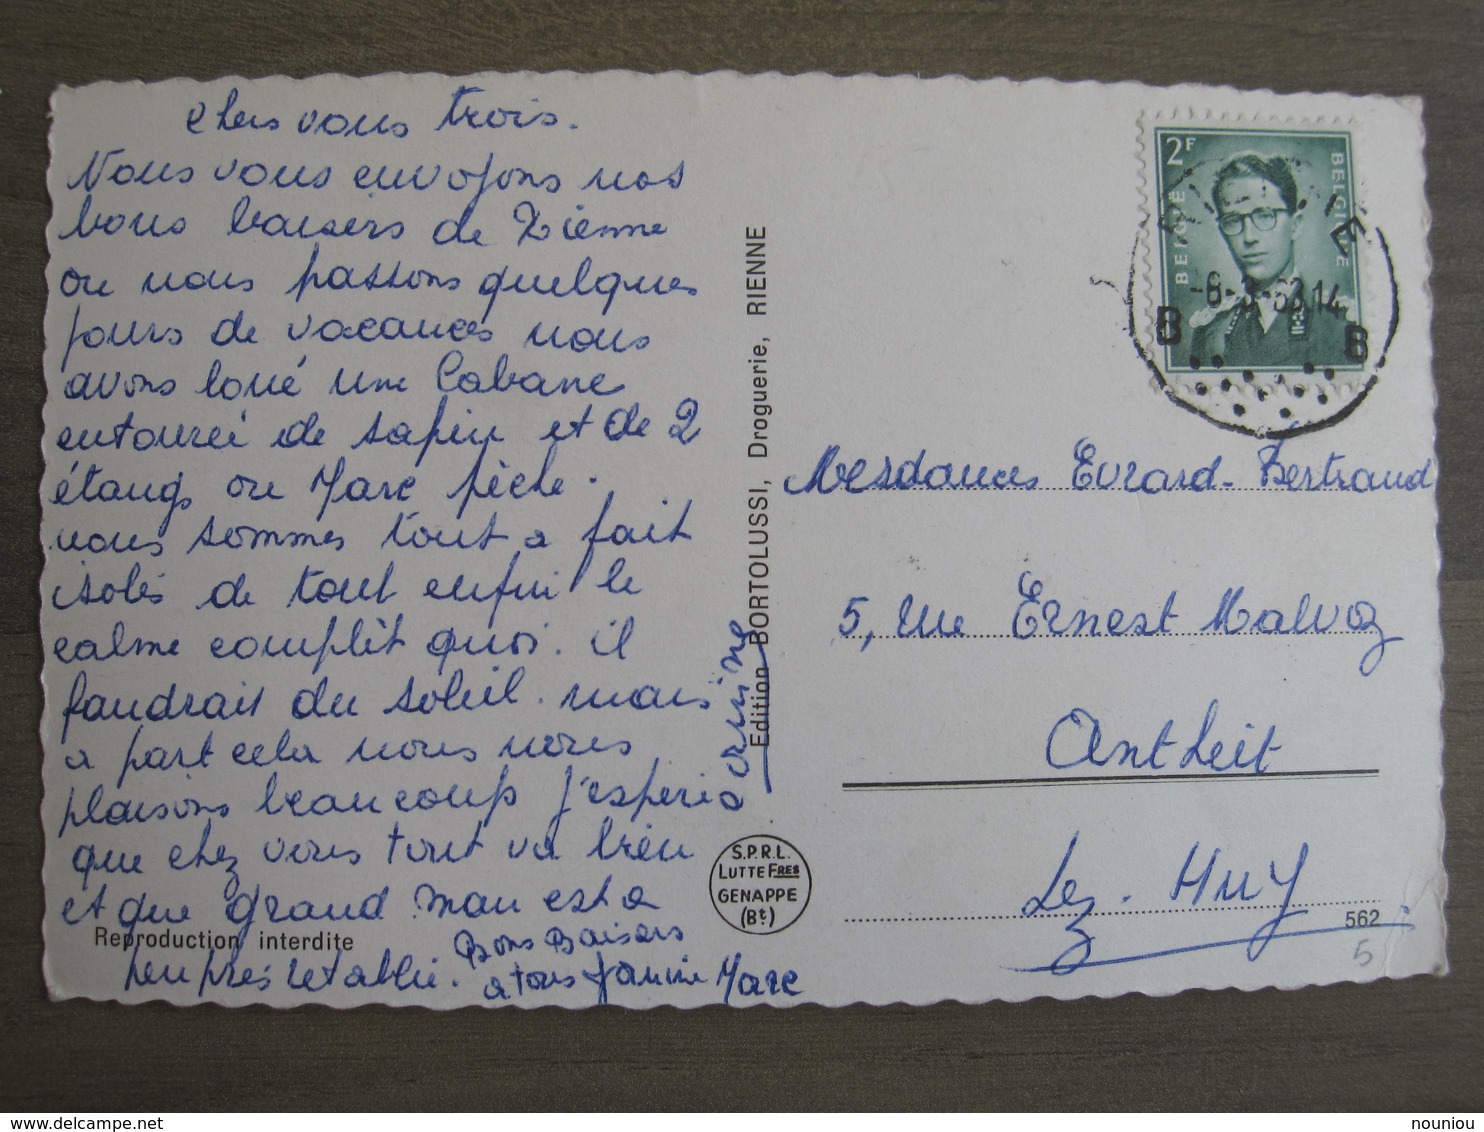 chers vous trois.
Nous vous envoyons nos
bons baisers de Rienne
ou nous passons quelques
jours de vacances nous
avons loué une Cabane
entourée de sapin et de 2
étangs ou Marc pèche.
nous sommes tout a fait
isolés de tout enfin le
calme complèt quoi. il
faudrait du soleil. mais
a part cela nous nous
plaisons beaucoup j'espère
que chez vous tout va bien
et que grand man est a
peu près rétablie.
Bons Baisers
a tous Janine Marc
Carmine
Reproduction interdite
Edition BORTOLUSSI, Droguerie, RIENNE
S.P.R.L.
LUTTE FRES
GENAPPE
(Bt.)
2F
BELGIË
BELGIQUE
-6-3-63 14
B B
Mesdames Evrard-Bertrand
5, rue Ernest Malvoz
Antheit
Lez-HUY
562
5
nouniou